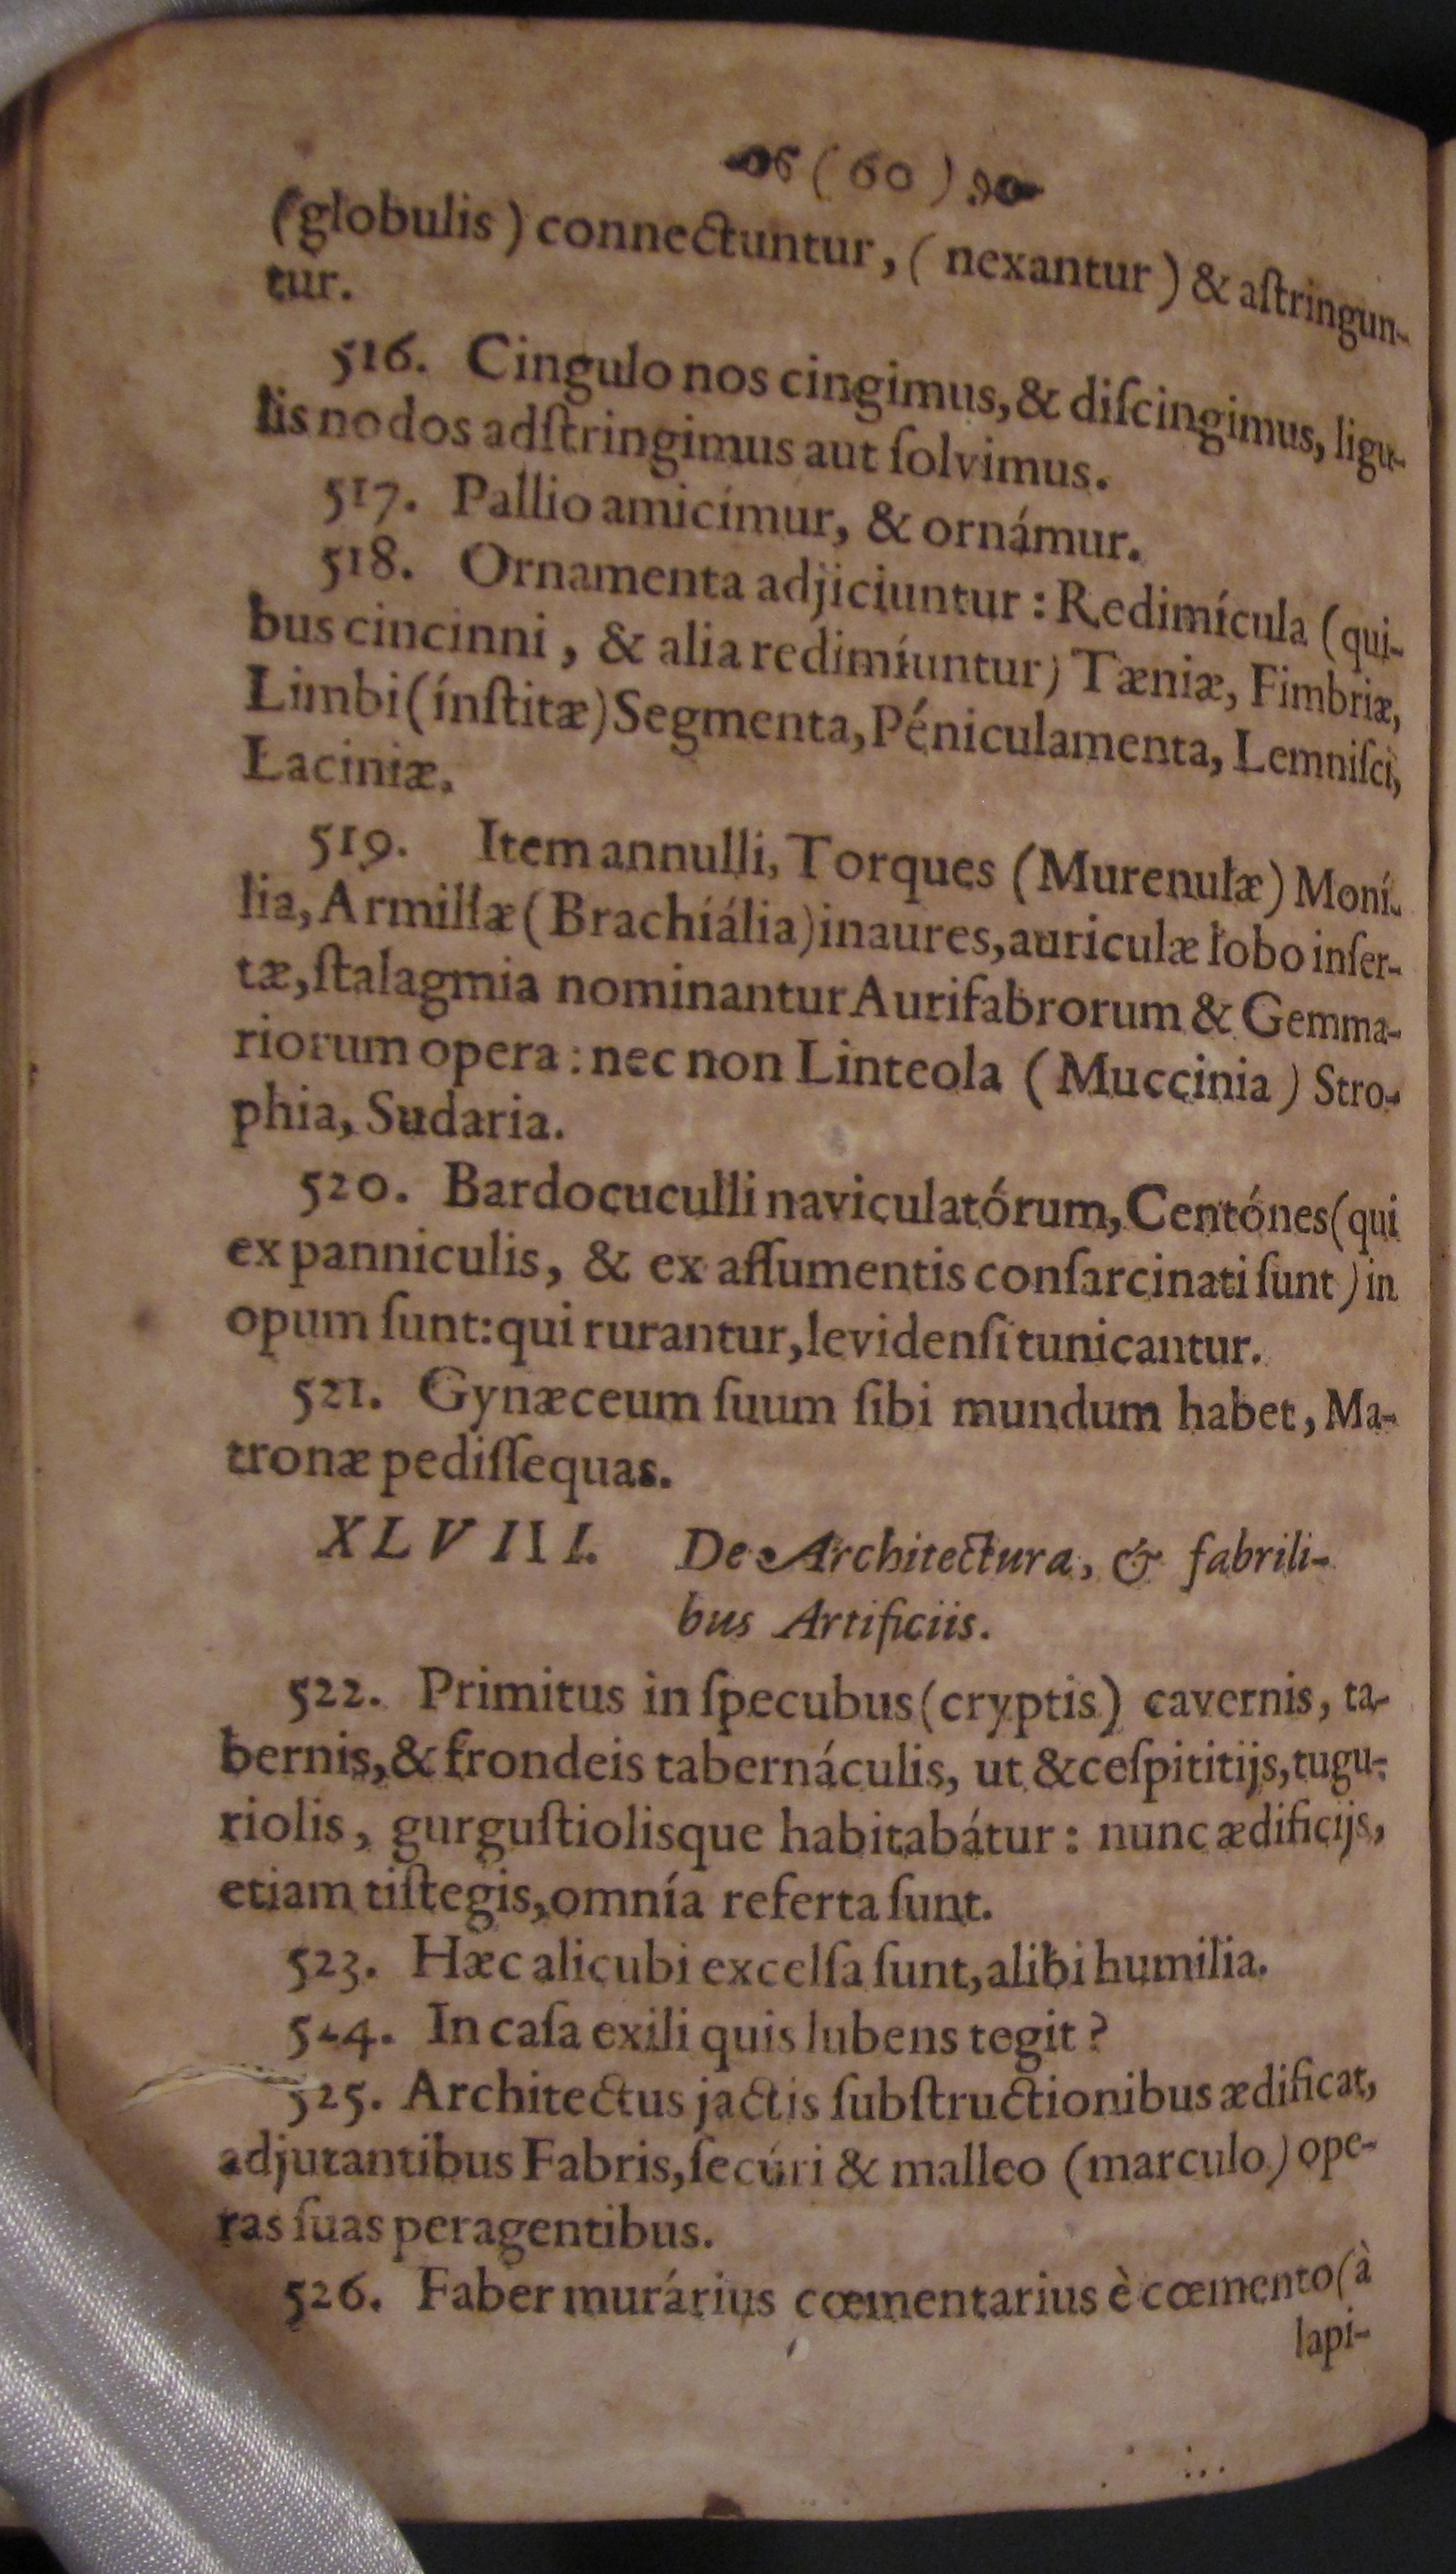 (60)
(globulis) connectuntur, (nexantur) & aſtringun-
tur.
516. Cingulo nos cingimus, & diſcingimus, ligu-
lis nodos adſtringimus aut ſolvimus.
517. Pallio amicímur, & ornámur.
518. Ornamenta adjiciuntur: Redimícula (qui-
bus cincinni, & alia redimíuntur) Tæniæ, Fimbriæ,
Limbi (ínſtitæ) Segmenta, Péniculamenta, Lemniſci,
Laciniæ.
519. Item annulli, Torques (Murenulæ) Moní-
lia, Armillæ (Brachíália) inaures, auriculæ lobo inſer-
tæ, ſtalagmia nominantur Aurifabrorum & Gemma-
riorum opera: nec non Linteola (Muccinia) Stro-
phia, Sudaria.
520. Bardocuculli naviculatórum, Centónes (qui
ex panniculis, & ex aſſumentis conſarcinati ſunt) in
opum ſunt: qui rurantur, levidenſi tunicantur.
521. Gynæceum ſuum ſibi mundum habet, Ma-
tronæ pediſſequas.
XLVIII. De Architectura, & fabrili-
bus Artificiis.
522. Primitus in ſpecubus (cryptis) cavernis, ta-
bernis, & frondeis tabernáculis, ut & ceſpititijs, tugu-
riolis, gurguſtiolisque habitabátur: nunc ædificijs,
etiam tiſtegis, omnía referta ſunt.
523. Hæc alicubi excelſa ſunt, alibi humilia.
524. In caſa exili quis lubens tegit?
525. Architectus jactis ſubſtructionibus ædificat,
adjutantibus Fabris, ſecúri & malleo (marculo) ope-
ras ſuas peragentibus.
526. Faber murárius cœmentarius è cœmento (à
lapi-